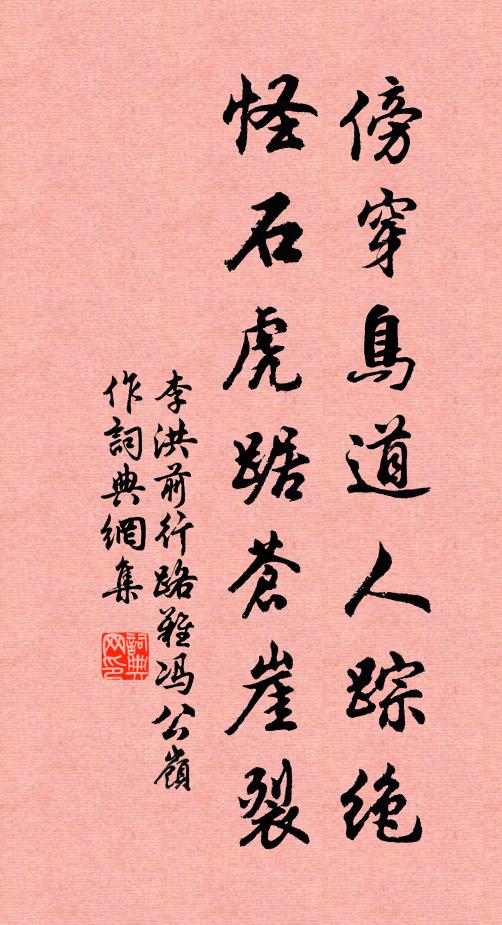 傍穿鳥道人踪绝
怪石虎踞蒼崖裂
李洪前行路難冯公嶺
作詞典網集
詞典网印